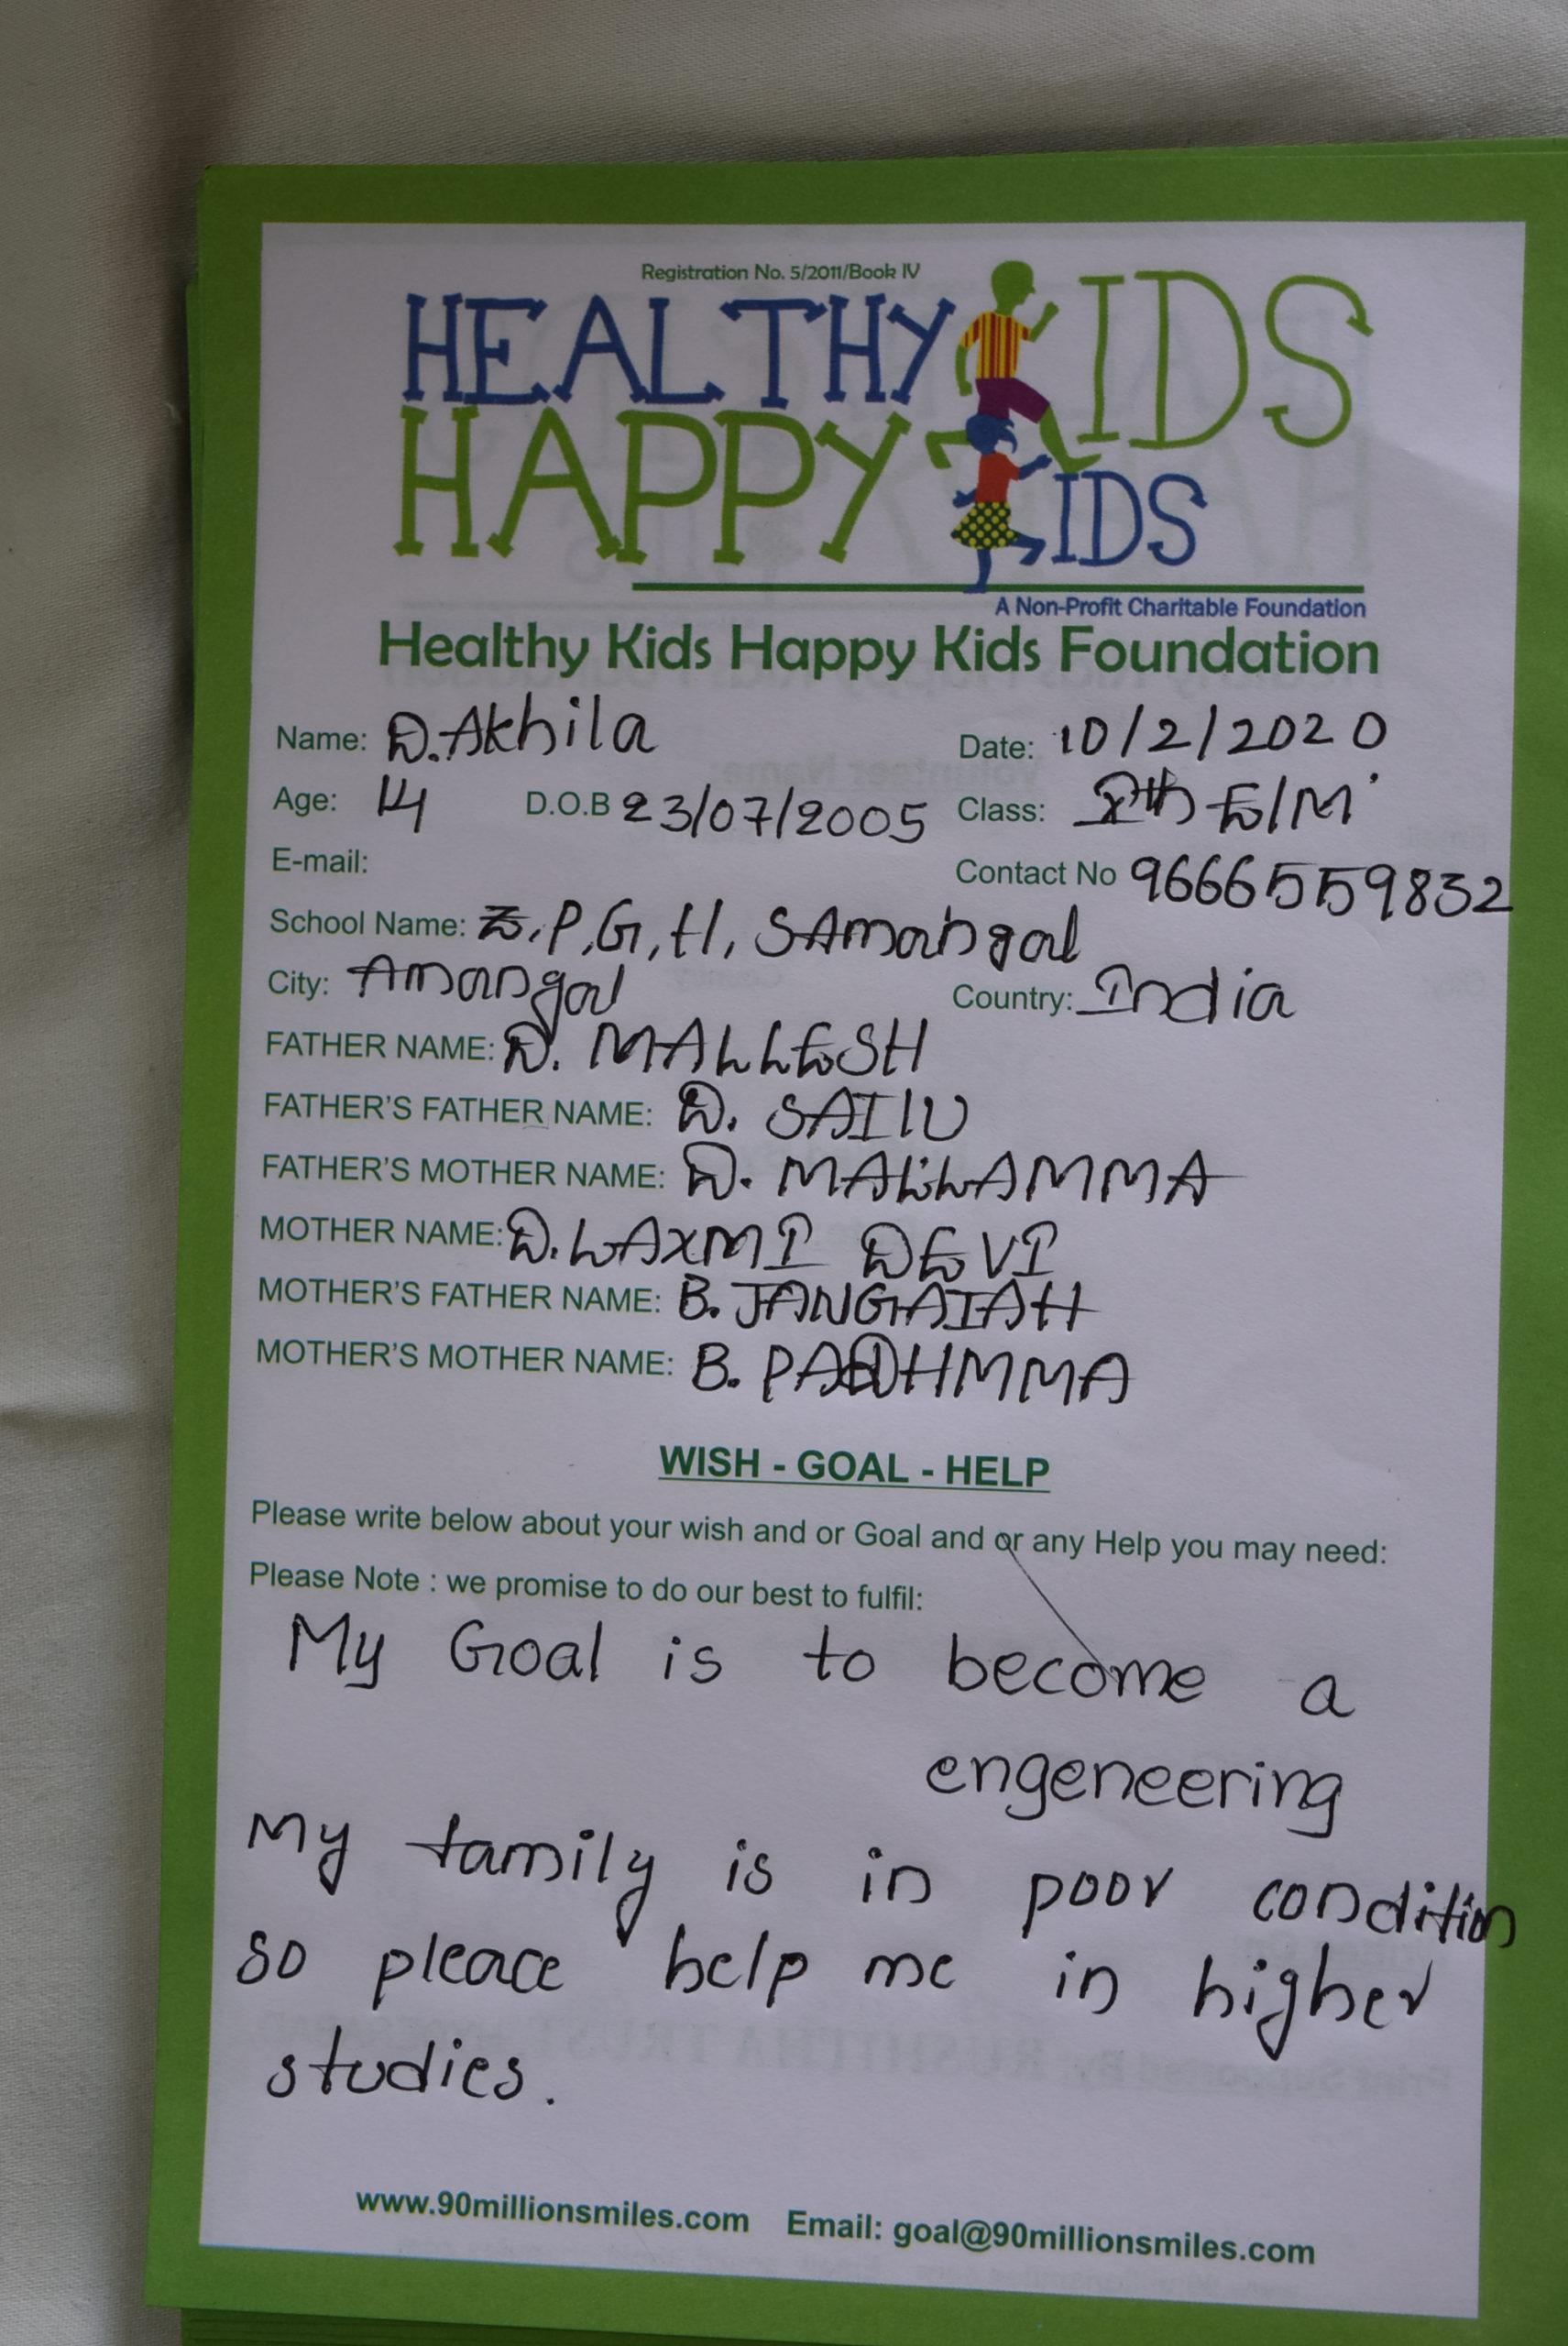 Registration No. 5/2011/Book IV
HEALTHY KIDS
HAPPY KIDS
A Non-Profit Charitable Foundation
Healthy Kids Happy Kids Foundation
Name: D.Akhila Date: 10/2/2020
Age: 14 D.O.B 23/07/2005 Class: Xth E/M
E-mail: Contact No 9666559832
School Name: Z.P,G,H, SAmangal
City: Amangal Country: India
FATHER NAME: D. MALLESH
FATHER'S FATHER NAME: D. SAIlU
FATHER'S MOTHER NAME: D. MALLAMMA
MOTHER NAME: D.LAXMI DEVI
MOTHER'S FATHER NAME: B. JANGAIAH
MOTHER'S MOTHER NAME: B. PADHMMA
WISH - GOAL - HELP
Please write below about your wish and or Goal and or any Help you may need:
Please Note : we promise to do our best to fulfil:
My Goal is to become a
engeneering
My family is in poor condition
so pleace help me in higher
studies.
www.90millionsmiles.com Email: goal@90millionsmiles.com